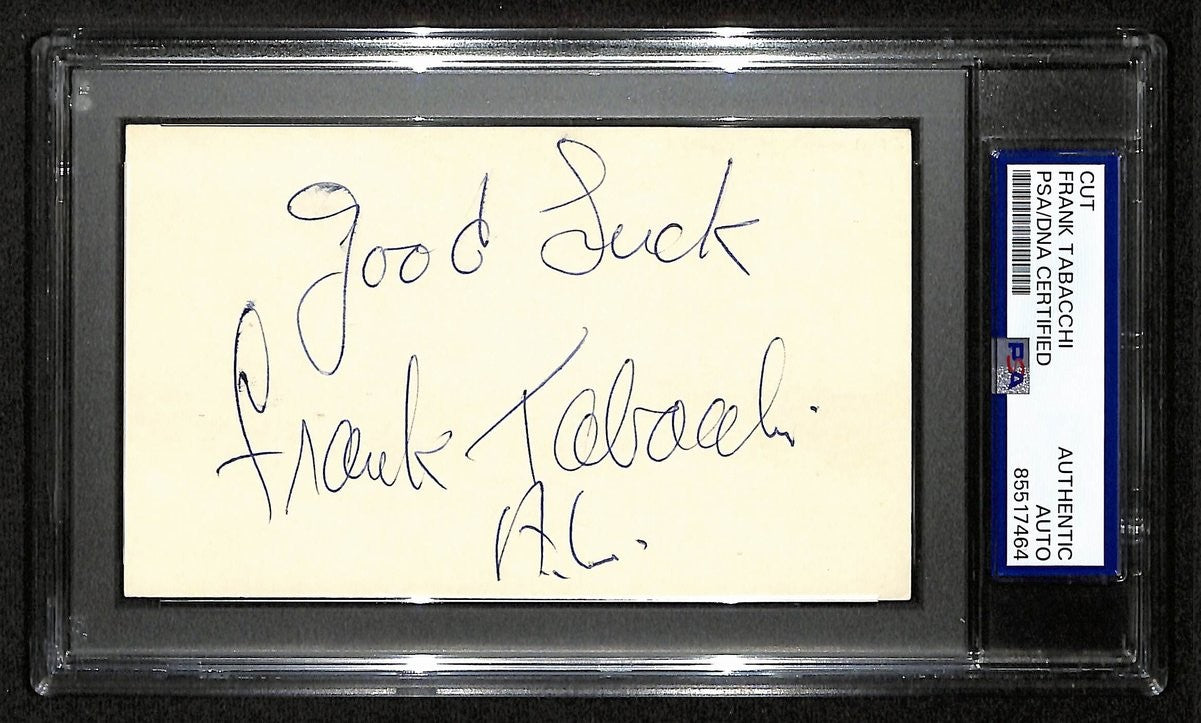 Good Luck
Frank Tabacchi
A.L.
CUT
FRANK TABACCHI
PSA/DNA CERTIFIED
AUTHENTIC
AUTO
85517464
PSA